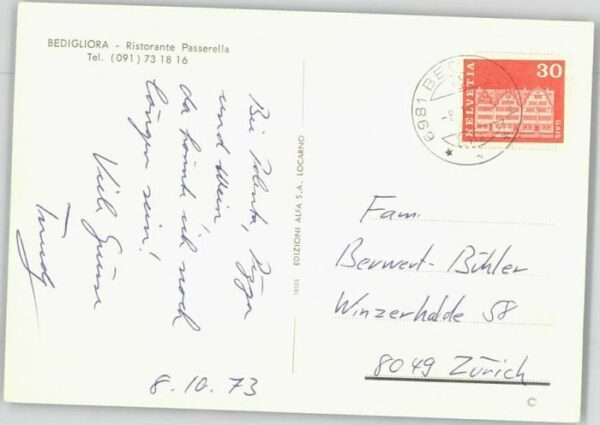 BEDIGLIORA - Ristorante Passerella
Tel. (091) 73 18 16
Bei Polenta, Pizza
und Wein
da könnt ich noch
länger sein!
Viele Grüsse
Trudy
8.10.73
EDIZIONI ALFA S.A. LOCARNO
6981 BE
HELVETIA
30
GAIS
Fam.
Berwert-Bühler
Winzerhalde 58
8049 Zürich
C